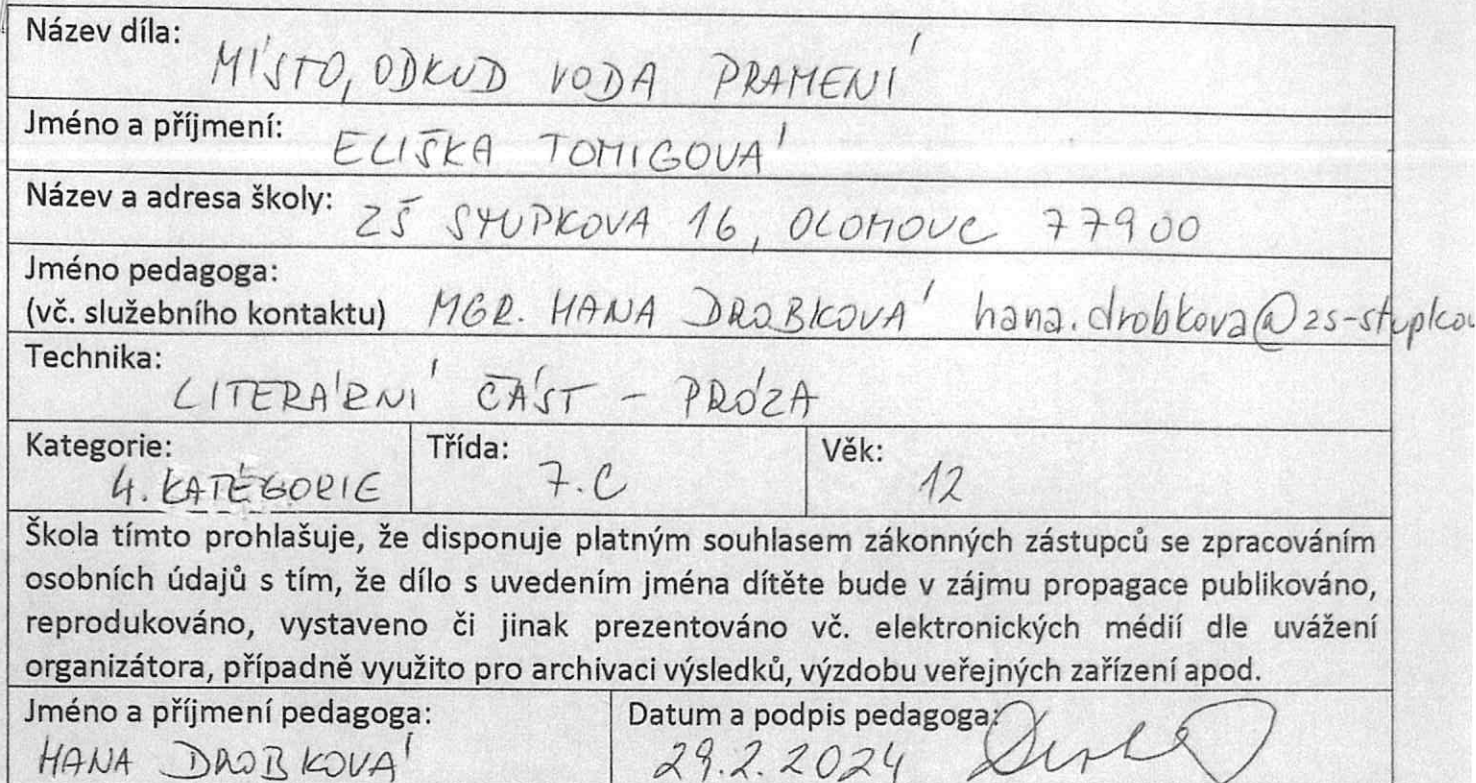 Název díla:
MÍSTO, ODKUD VODA PRAMENÍ
Jméno a příjmení:
ELIŠKA TOMIGOVÁ
Název a adresa školy:
ZŠ STUPKOVA 16, OLOMOUC 77900
Jméno pedagoga:
(vč. služebního kontaktu) MGR. HANA DROBKOVÁ hana.drobkova@zs-stupkov
Technika:
LITERÁRNÍ ČÁST - PRÓZA
Kategorie: Třída: Věk:
4. KATEGORIE 7.C 12
Škola tímto prohlašuje, že disponuje platným souhlasem zákonných zástupců se zpracováním
osobních údajů s tím, že dílo s uvedením jména dítěte bude v zájmu propagace publikováno,
reprodukováno, vystaveno či jinak prezentováno vč. elektronických médií dle uvážení
organizátora, případně využito pro archivaci výsledků, výzdobu veřejných zařízení apod.
Jméno a příjmení pedagoga: Datum a podpis pedagoga:
HANA DROBKOVÁ 29.2.2024